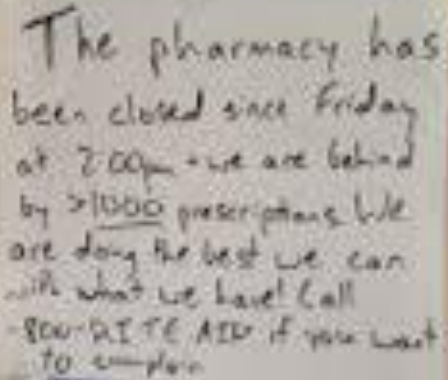 The pharmacy has
been closed since Friday
at 2:00pm - we are behind
by >1000 prescriptions. We
are doing the best we can
with what we have! Call
-800-RITE AID if you want
to complain